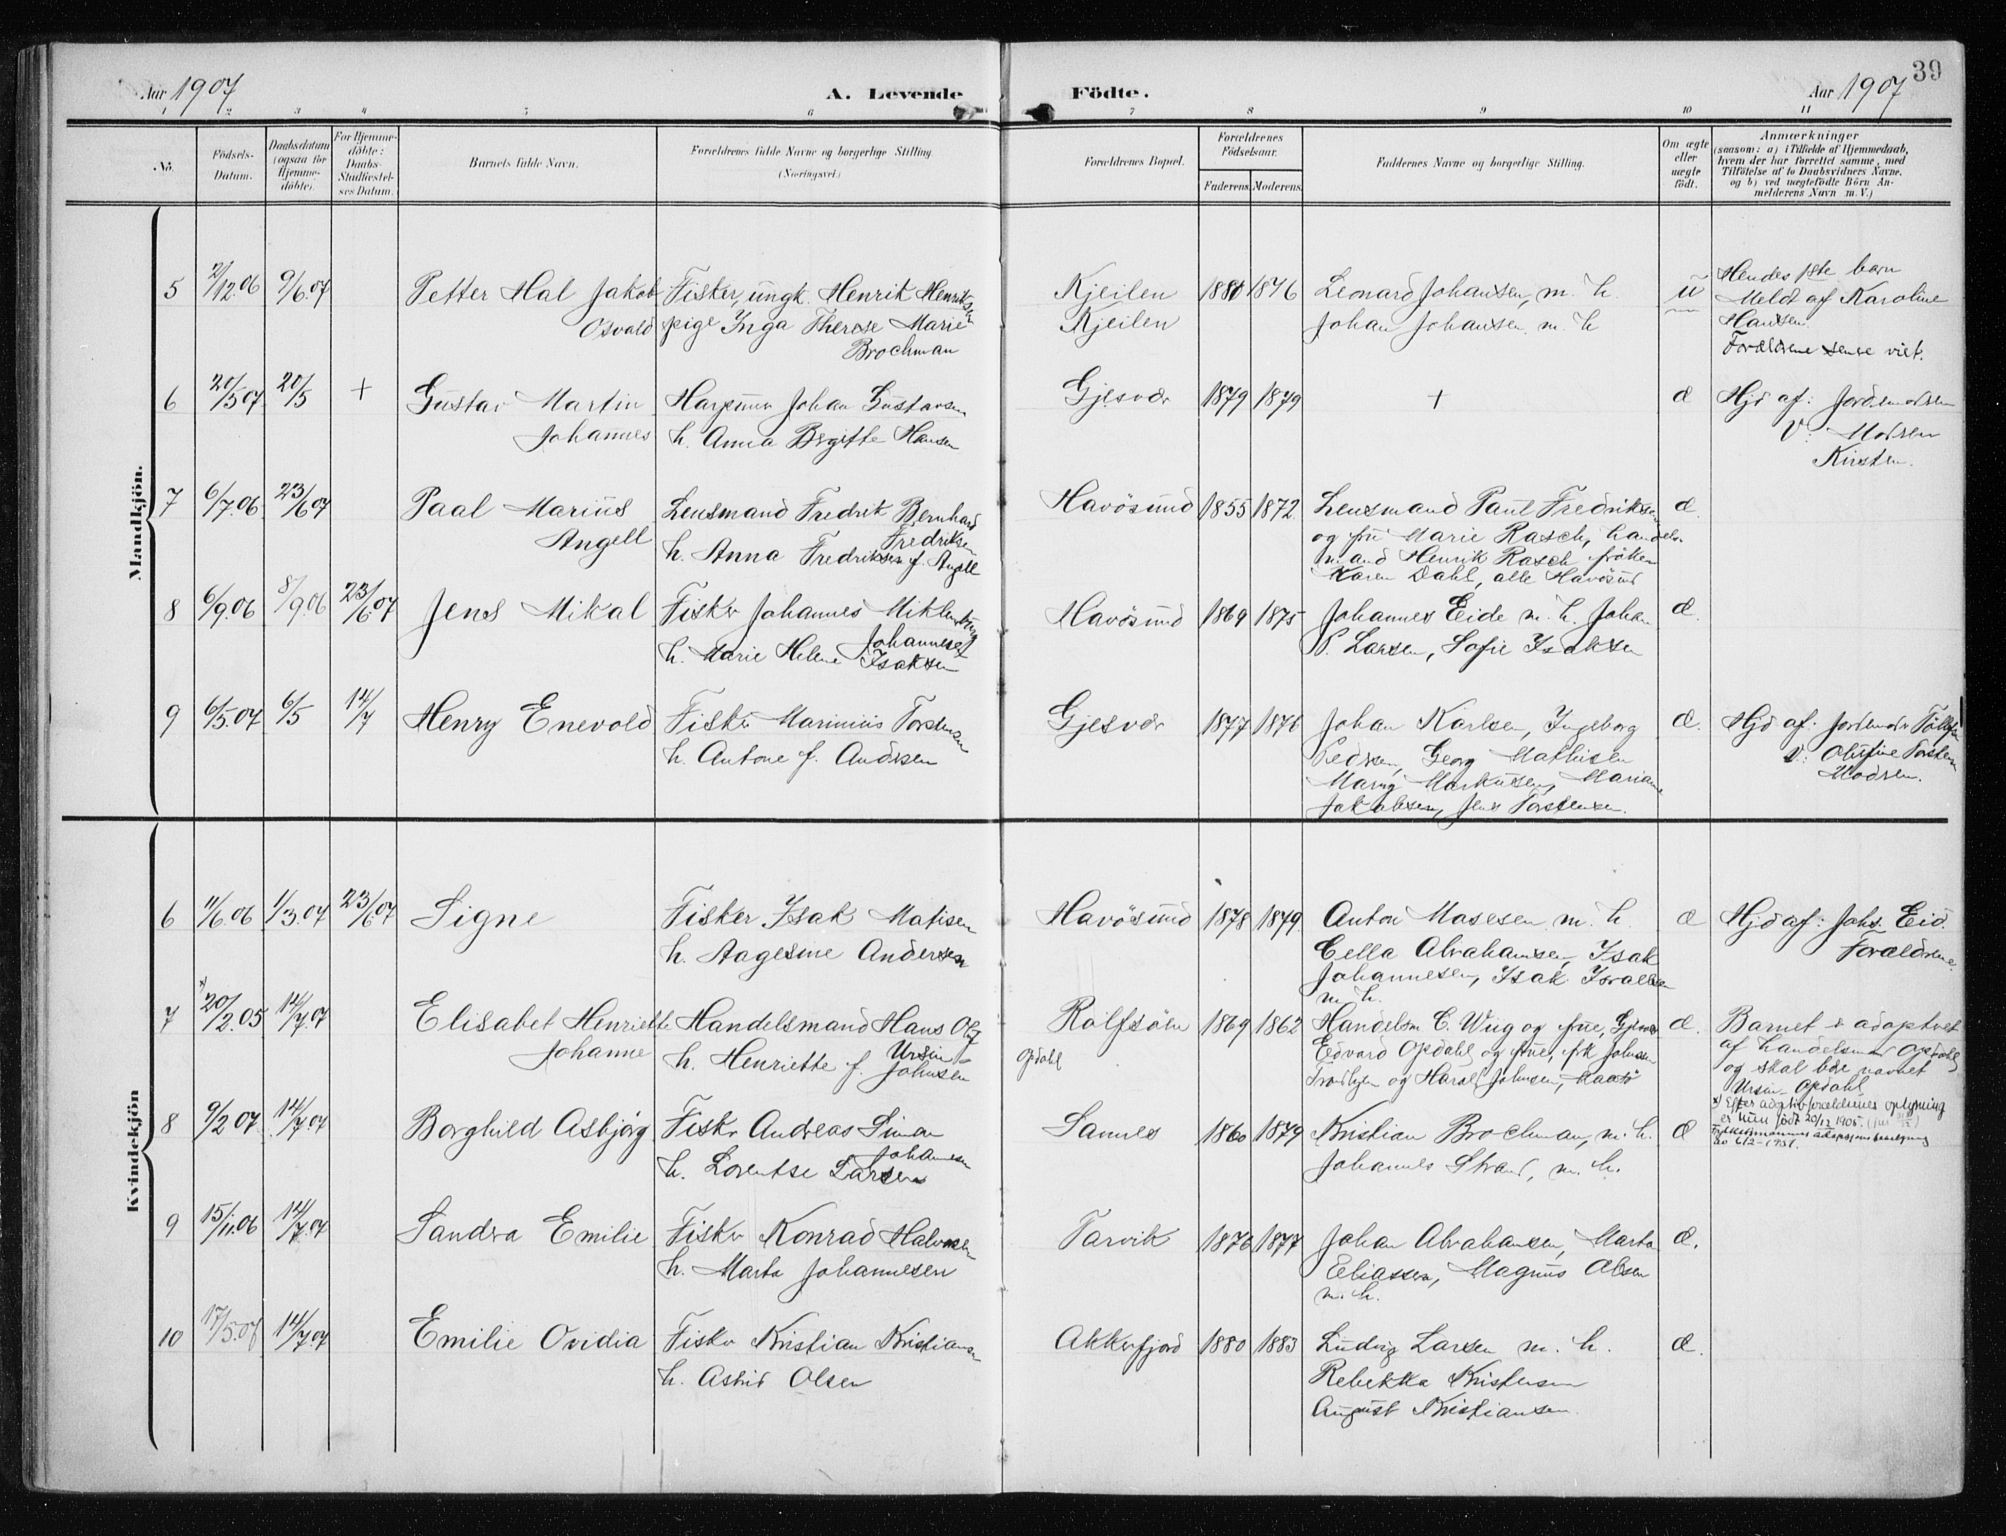 39
Aar 1907
A. Levende
Födte.
Aar 1907
1 2 3 4 5 6 7 8 9 10 11
No.
Födsels-Datum.
Daabsdatum (ogsaa for Hjemme-döbte).
For Hjemme-döbte: Daabs-Stadfæstel-ses Datum.
Barnets fulde Navn.
Forældrenes fulde Navne og borgerlige Stilling.
(Næringsvei.)
Forældrenes Bopæl.
Forældrenes Födselsaar.
Faderens. Moderens.
Faddernes Navne og borgerlige Stilling.
Om ægte eller uægte födt.
Anmærkninger
(saasom: a) i Tilfælde af Hjemmedaab,
hvem der har forrettet samme, med
Tilföielse af to Daabsvidners Navne,
og b) ved uægtefödte Börn An-
melderens Navn m. V.)
Mandkjön.
5 2/12.06 9/6.07 Petter Hal Jakob Fisker, ungk. Henrik Henriksen Kjeilen 1880 1876 Leonard Johansen, m. h. u Hendes 1ste barn
Osvald pige Inga Therese Marie Kjeilen Johan Johansen m. h Meldt af Karoline
Brochman Hansen.
Forældrene senere viet.
6 20/5 07 20/5 + Gustav Martin Johan Gustavsen Gjesvær 1879 1879 + æ Hjd af: Jordemoderen
Johannes h. Anna Birgitte Hansen V: Modren
Kirsten.
7 6/7.06 23/6 07 Paal Marius Lensmand Fredrik Bernhard Havösund 1855 1872 Lensmand Paul Fredriksen æ.
Angell Fredriksen og fru Marie Rasch, handels-
h. Anna Fredriksen f. Angell mand Henrik Rasch, fröken
Karen Dahl, alle Havösund
8 6/9.06 8/9.06 23/6 07 Jens Mikal Fisker Johannes Havösund 1869 1875 Johannes Eide m. h. Johan æ.
Johannesen P. Larsen, Sofie Isaksen
h. Marie Helene Isaksen
9 6/5.07 6/5 14/7 Henry Enevold Fisker Marinius Torstensen Gjesvær 1877 1876 Johan Karlsen, Ingeborg æ. Hjd af: Jordemor
h. Antone f. Andersen Pedersen, Georg Mathisen V:
Markussen, Modren.
Jakobsen, Jens Torstensen.
Kvindekjön
6 11/6.06 1/3.07 23/6 07 Signe Fisker Isak Matisen Havösund 1878 1879 Anton Masesen m. h. æ Hjd af: Johs. Eid.
h. Aagesine Andersen Cella Abrahamsen, Isak Forældrene.
Johannesen, Isak Israelsen
m. h.
7 20/12.05 14/7.07 Elisabet Henriette Handelsmand Hans Olaf Rolfsöen 1869 1862 Handelsm C. Wiig og frue, æ. Barnet er adoptret
Johanne Ursin Opdahl Edvard Opdahl og frue, frk Johnsen af handelsmand Opdahl
h. Henriette f. Johnsen og Harald Johnsen, og skal bære navnet
Ursin Opdahl
x) Efter adoptivforældrenes oplysning
er hun född 20/12 1905.
8 9/2 07. 14/7.07 Borghild Asbjörg Fisker Andreas Simon 1860 1879 Kristian Brochman, m. h. æ
Johannesen Johannes Strand, m. h.
h. Lorentse Larsen
9 15/11.06 14/7.07 Sandra Emilie Fisker Konrad Halvorsen Tarvik 1876 1877 Johan Abrahamsen, Marta æ.
h. Marta Johannesen Eliassen, Magnus Olsen
m. h.
10 17/5.07 14/7.07 Emilie Ovidia Fisker Kristian Kristiansen Akkerfjord 1880 1883 Ludvig Larsen m. h. æ.
h. Astrid Olsen Rebekka Kristensen
August Kristiansen